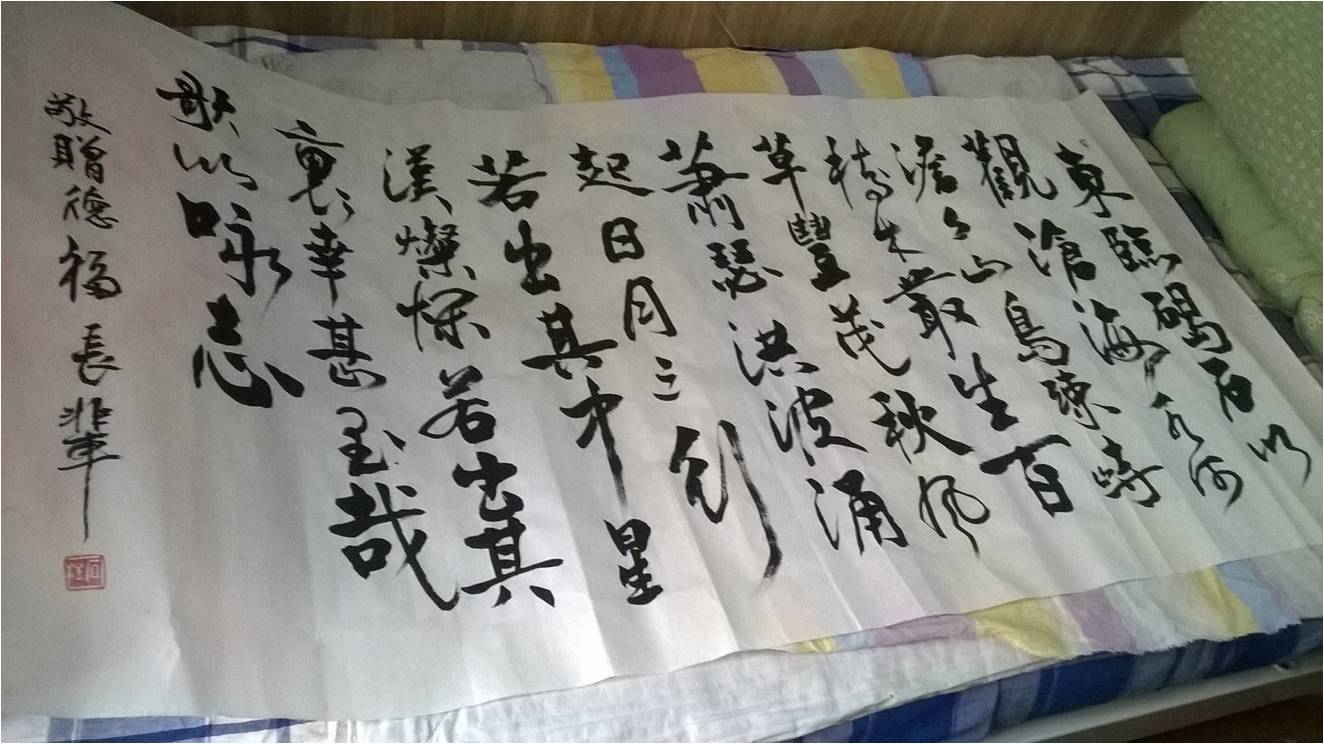 東臨碣石以
觀滄海水何
澹々山島竦峙
樹木叢生百
草豐茂秋風
蕭瑟洪波涌
起日月之行
若出其中星
漢燦爛若出其
裏幸甚至哉
歌以咏志
敬贈德福 長輩